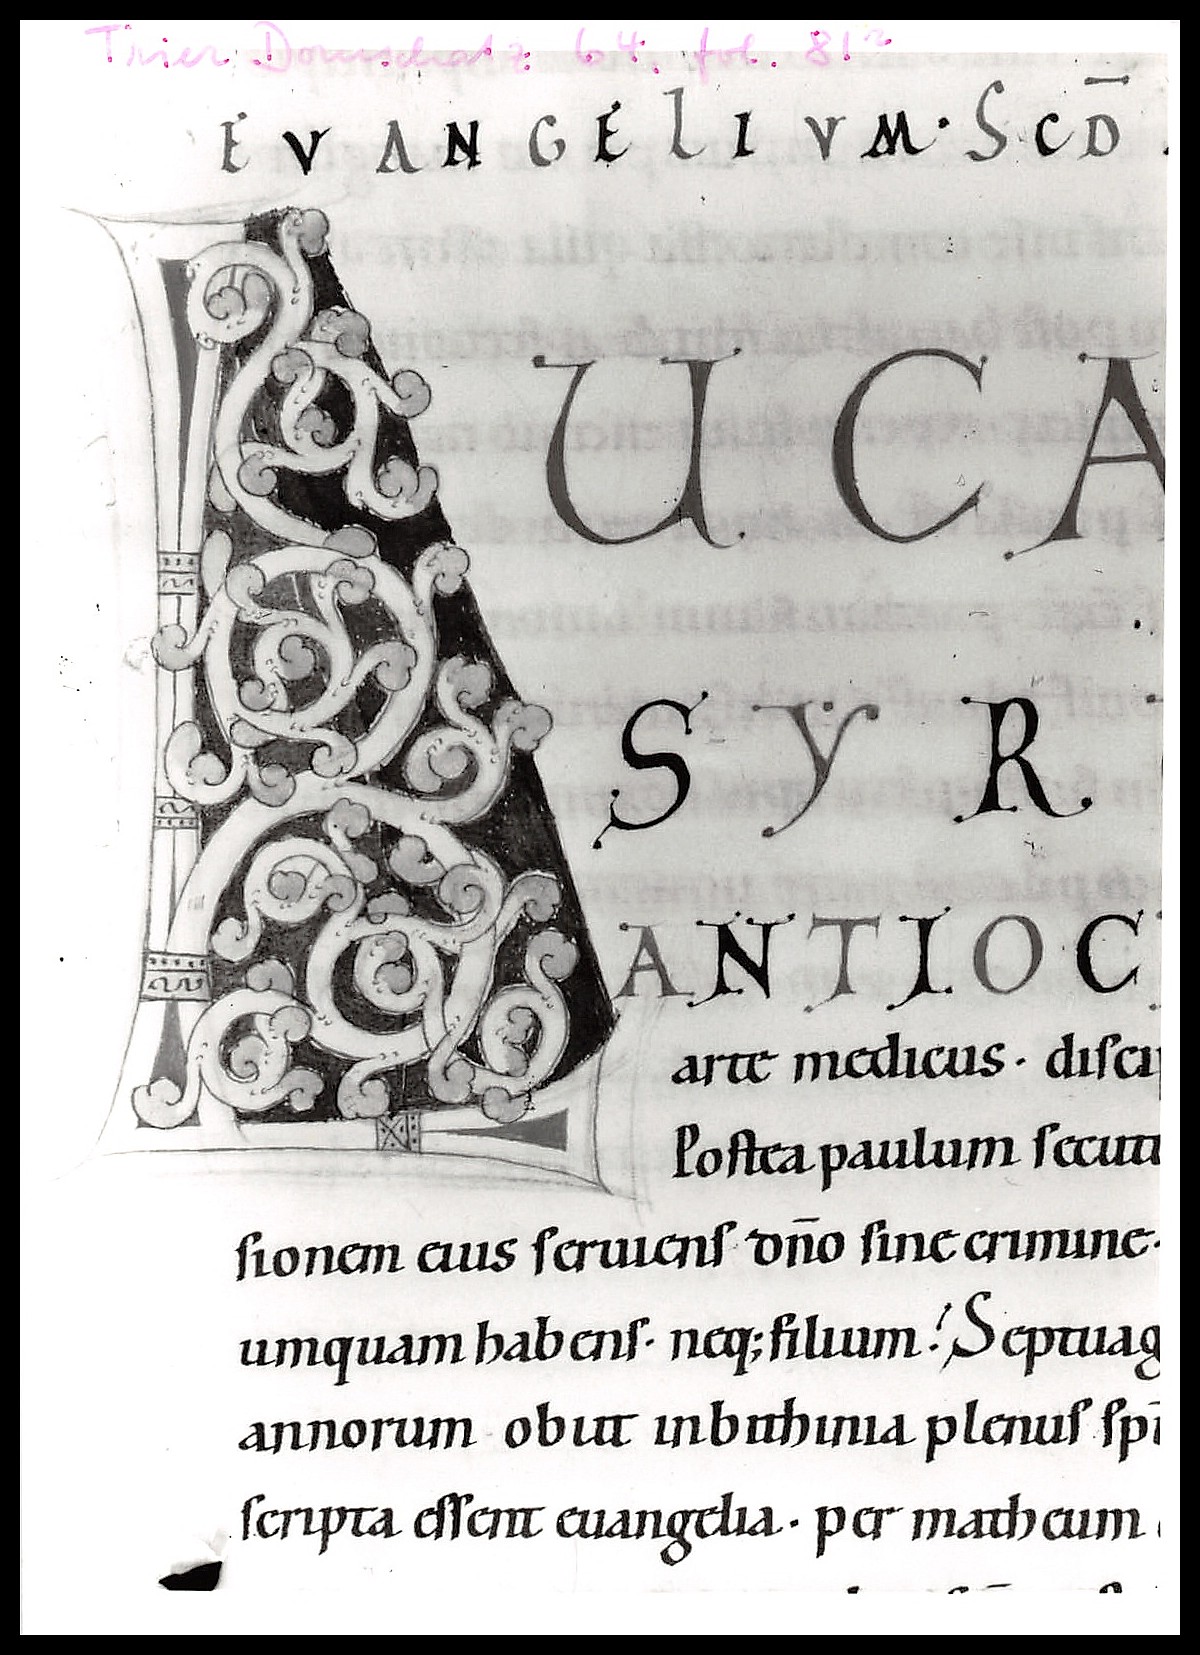 Trier Domschatz 64, fol. 81r
EVANGELIVM · SCD̄
LUCA
SYR
ANTIOC
arte medicus · disci
Postea paulum secut
sionem eius seruiens dn̄o sine crimine ·
umquam habens · neq; filium · Septuag
annorum obiit inbithinia plenus sp̄i
scripta essent euangelia · per matheum